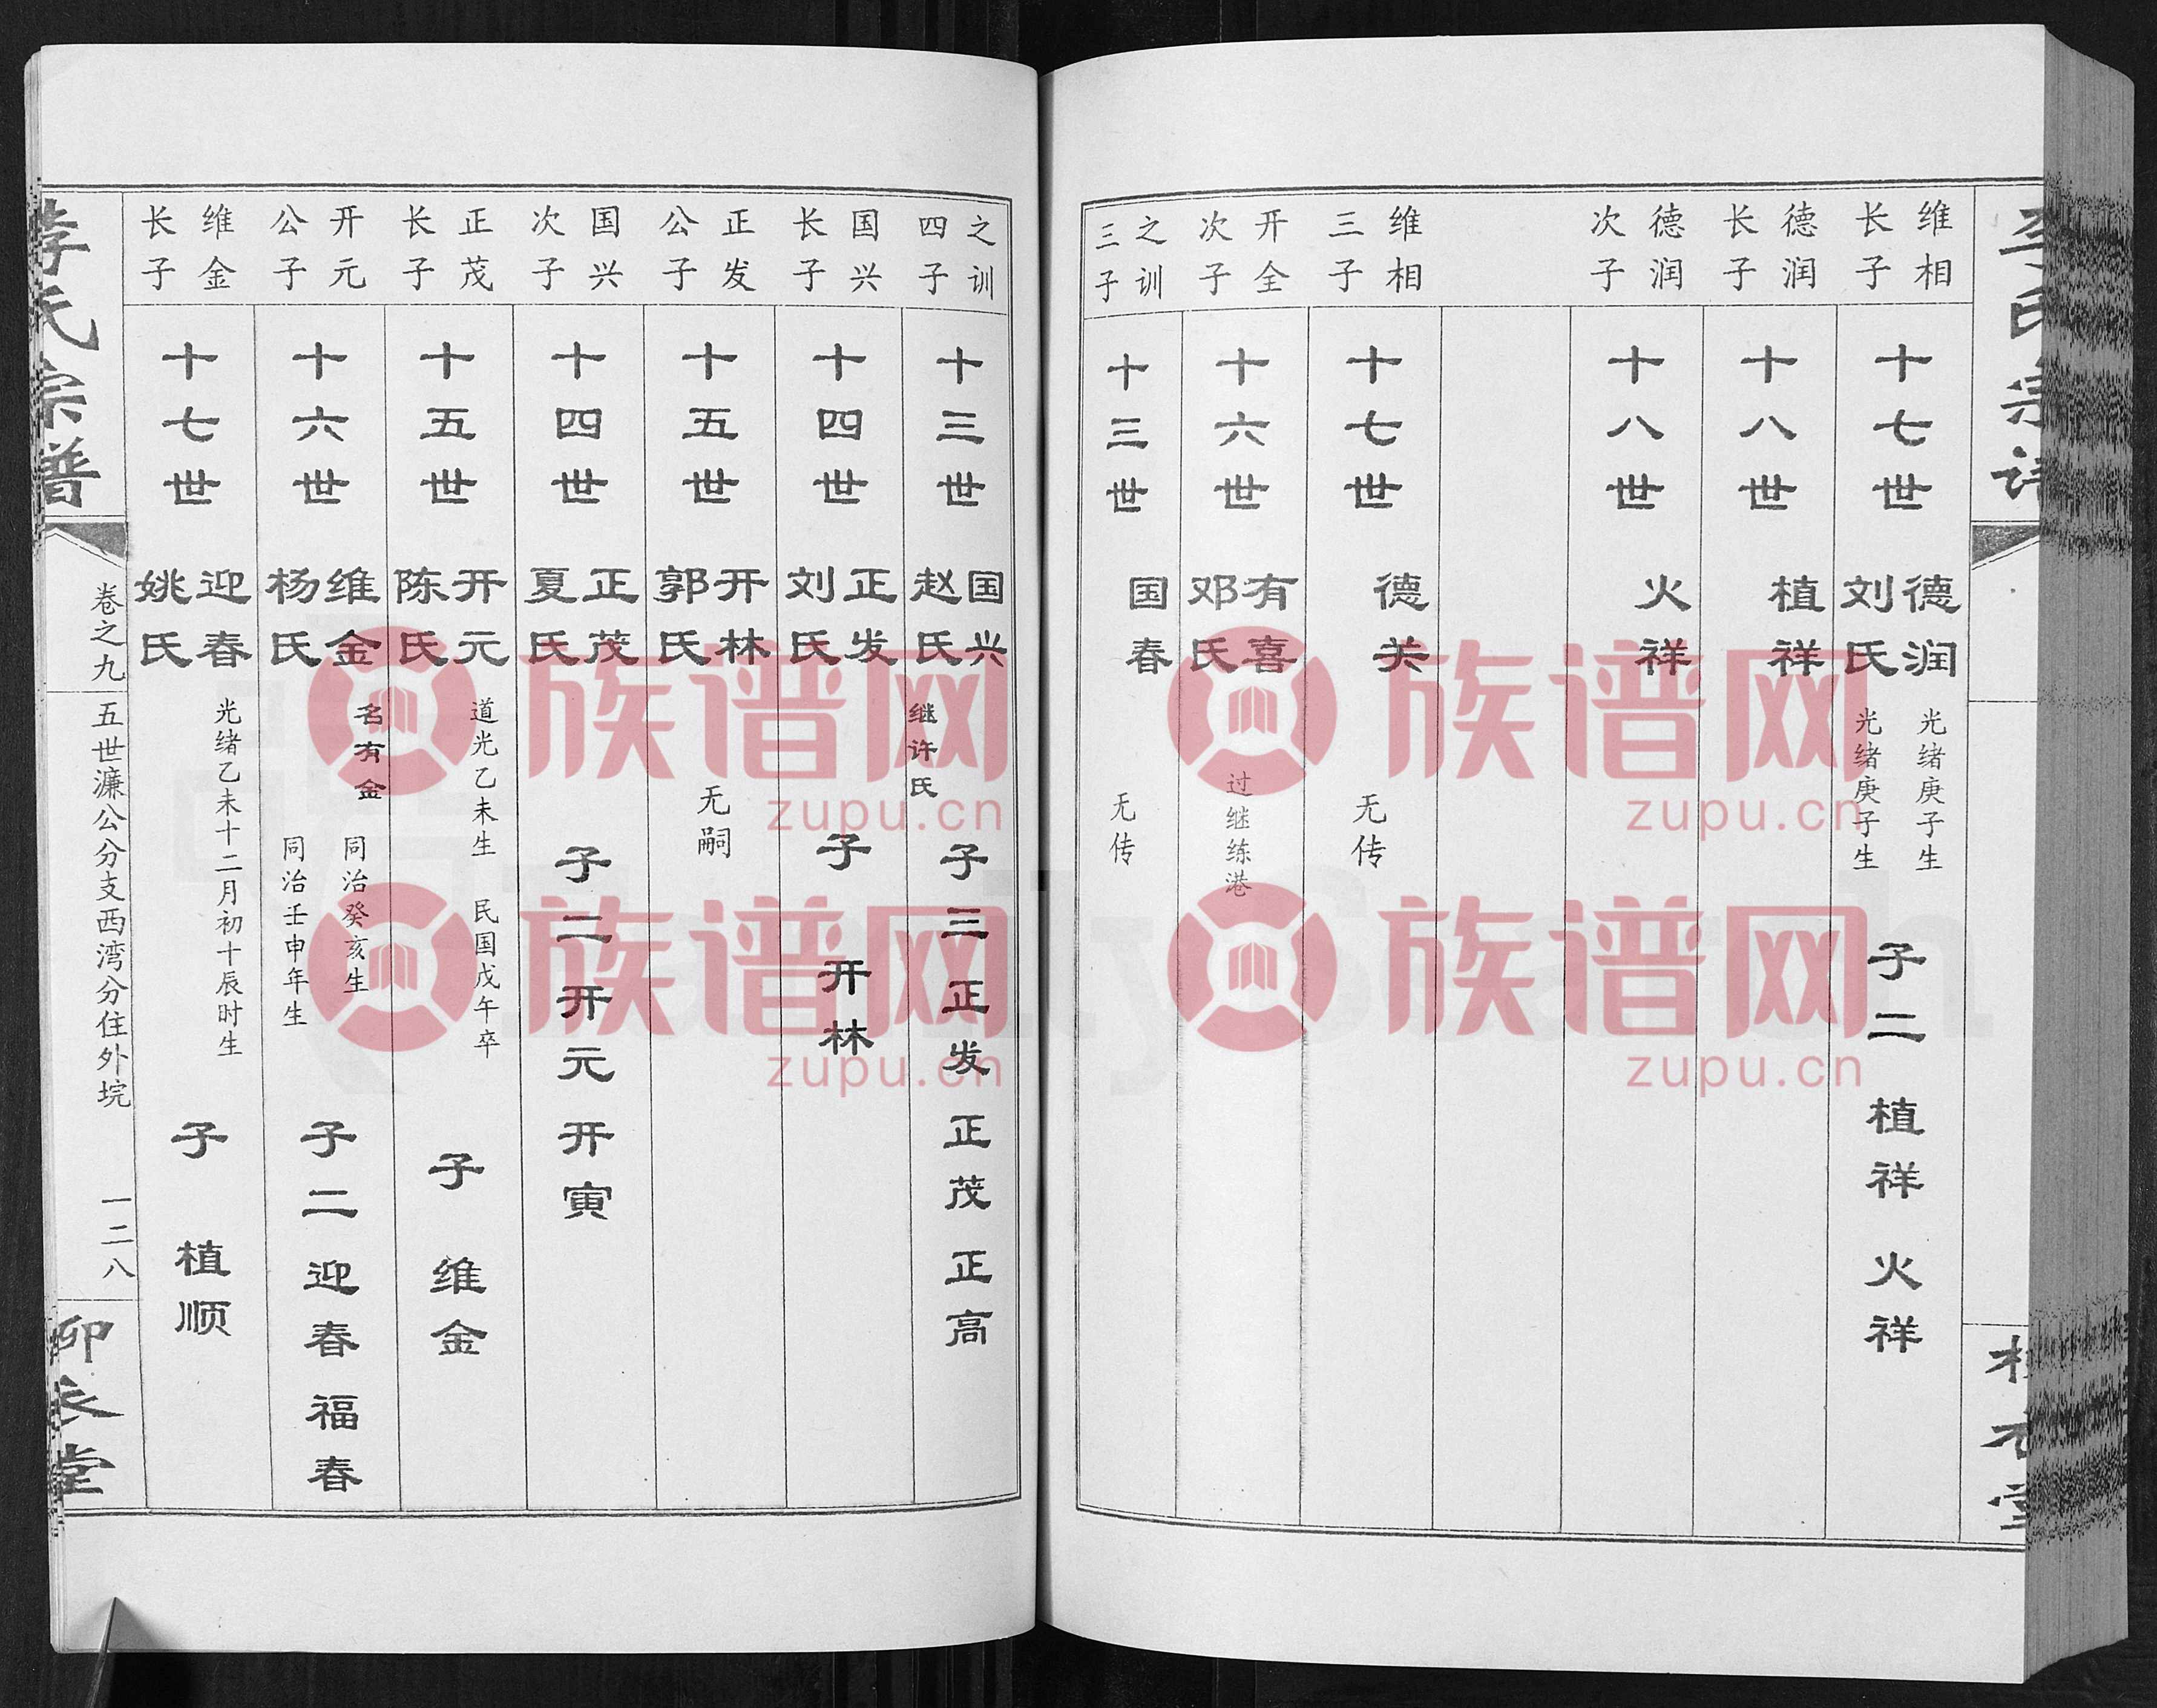 李氏宗谱
维相
长子
十七世
德润
刘氏
光绪庚子生
光绪庚子生
子二 植祥 火祥
德润
长子
十八世
植祥
德润
次子
十八世
火祥
维相
三子
十七世
德关
无传
开全
次子
十六世
有喜
邓氏
过继练港
之训
三子
十三世
国春
无传
之训
四子
十三世
国兴
赵氏
继许氏
子三 正发 正茂 正高
国兴
长子
十四世
正发
刘氏
子 开林
正发
公子
十五世
开林
郭氏
无嗣
国兴
次子
十四世
正茂
夏氏
子二 开元 开寅
正茂
长子
十五世
开元
陈氏
道光乙未生 民国戊午卒
子 维金
开元
公子
十六世
维金
杨氏
名有金
同治癸亥生
同治壬申年生
子二 迎春 福春
维金
长子
十七世
迎春
姚氏
光绪乙未十二月初十辰时生
子 植顺
李氏宗谱
卷之九
五世濂公分支西湾分住外垸
一二八
族谱网
zupu.cn
族谱网
zupu.cn
族谱网
zupu.cn
族谱网
zupu.cn